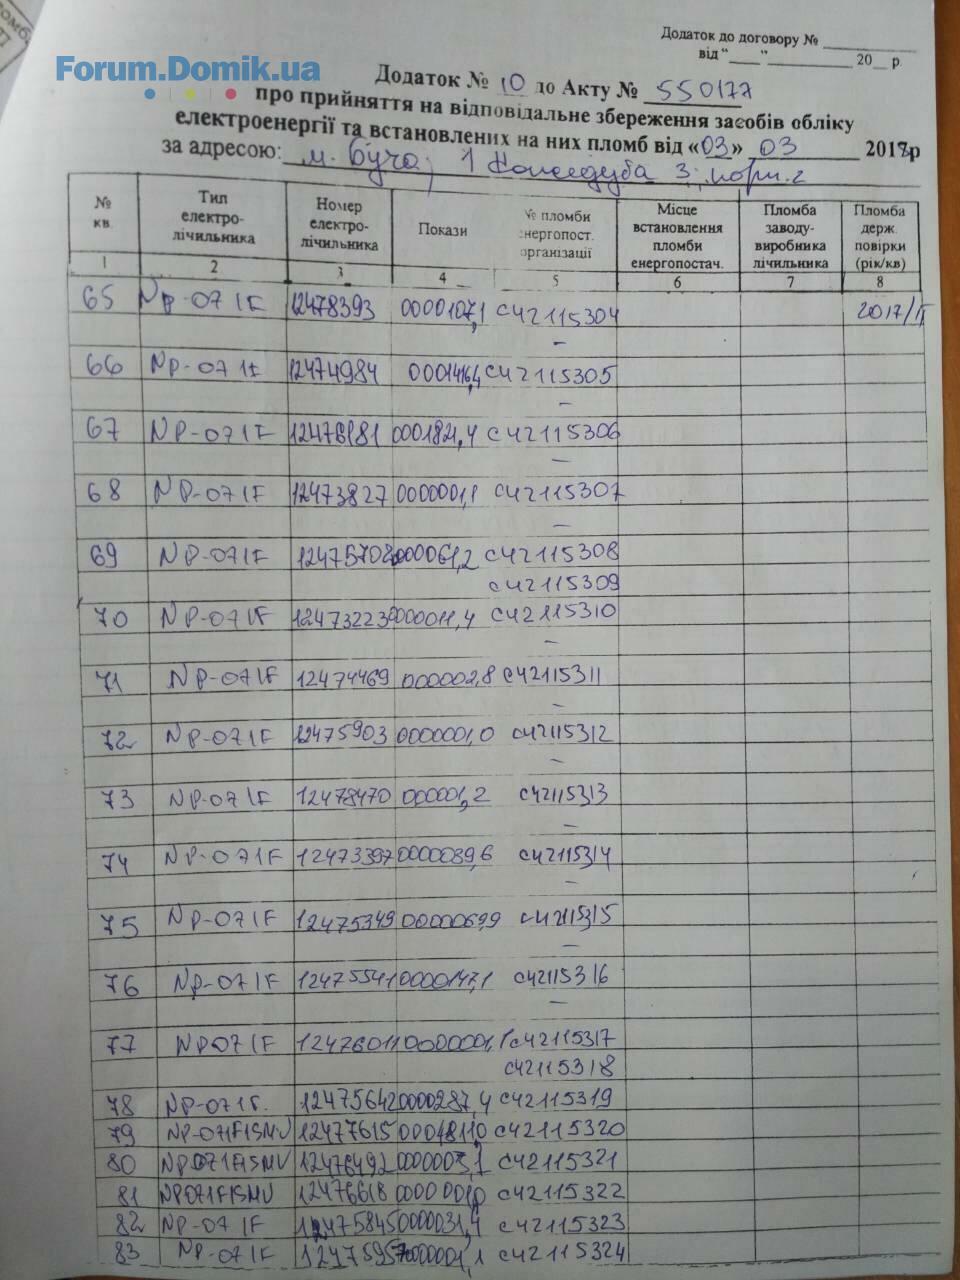 Forum.Domik.ua
Додаток до договору № ____________
від "____"____________ 20__ р.
Додаток № 10 до Акту № 550177
про прийняття на відповідальне збереження засобів обліку
електроенергії та встановлених на них пломб від «03» 03 2018р
за адресою: м. Буча,
№ кв. | Тип електро-лічильника | Номер електро-лічильника | Покази | № пломби енергопост. організації | Місце встановлення пломби енергопостач. | Пломба заводу-виробника лічильника | Пломба держ. повірки (рік/кв)
1 | 2 | 3 | 4 | 5 | 6 | 7 | 8
65 NP-071F 12478393 0000107,1 С42115304 2017/II
–
66 NP-071F 12474984 0001416,4 С42115305
–
67 NP-071F 12476181 0001821,4 С42115306
–
68 NP-071F 12473827 0000001,1 С42115307
–
69 NP-071F 12475708 000061,2 С42115308
С42115309
70 NP-071F 12473223 0000011,4 С42115310
–
71 NP-071F 12474469 000002,8 С42115311
–
72 NP-071F 12475903 0000001,0 С42115312
–
73 NP-071F 12478470 000001,2 С42115313
–
74 NP-071F 12473397 0000039,6 С42115314
–
75 NP-071F 12475349 С42115315
–
76 NP-071F 12475541 0000147,1 С42115316
–
77 NP071F 12476011 0000001,1 С42115317
С42115318
78 NP-071F. 12475642 0000287,4 С42115319
79 NP-071FISMU 12477615 С42115320
80 NP071FISMV 12476492 0000003,1 С42115321
81 NP071FISMU 12476618 С42115322
82 NP-071F 12475845 0000031,4 С42115323
83 NP-071F 12475957 000001,1 С42115324